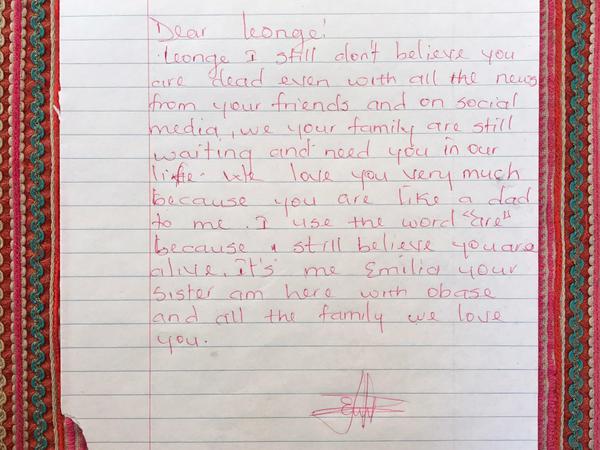 Dear Leonge!
Leonge I still don't believe you
are dead even with all the news
from your friends and on social
media, we your family are still
waiting and need you in our
life. We love you very much
because you are like a dad
to me. I use the word "are"
because I still believe you are
alive. It's me Emilia your
sister am here with obase
and all the family we love
you.